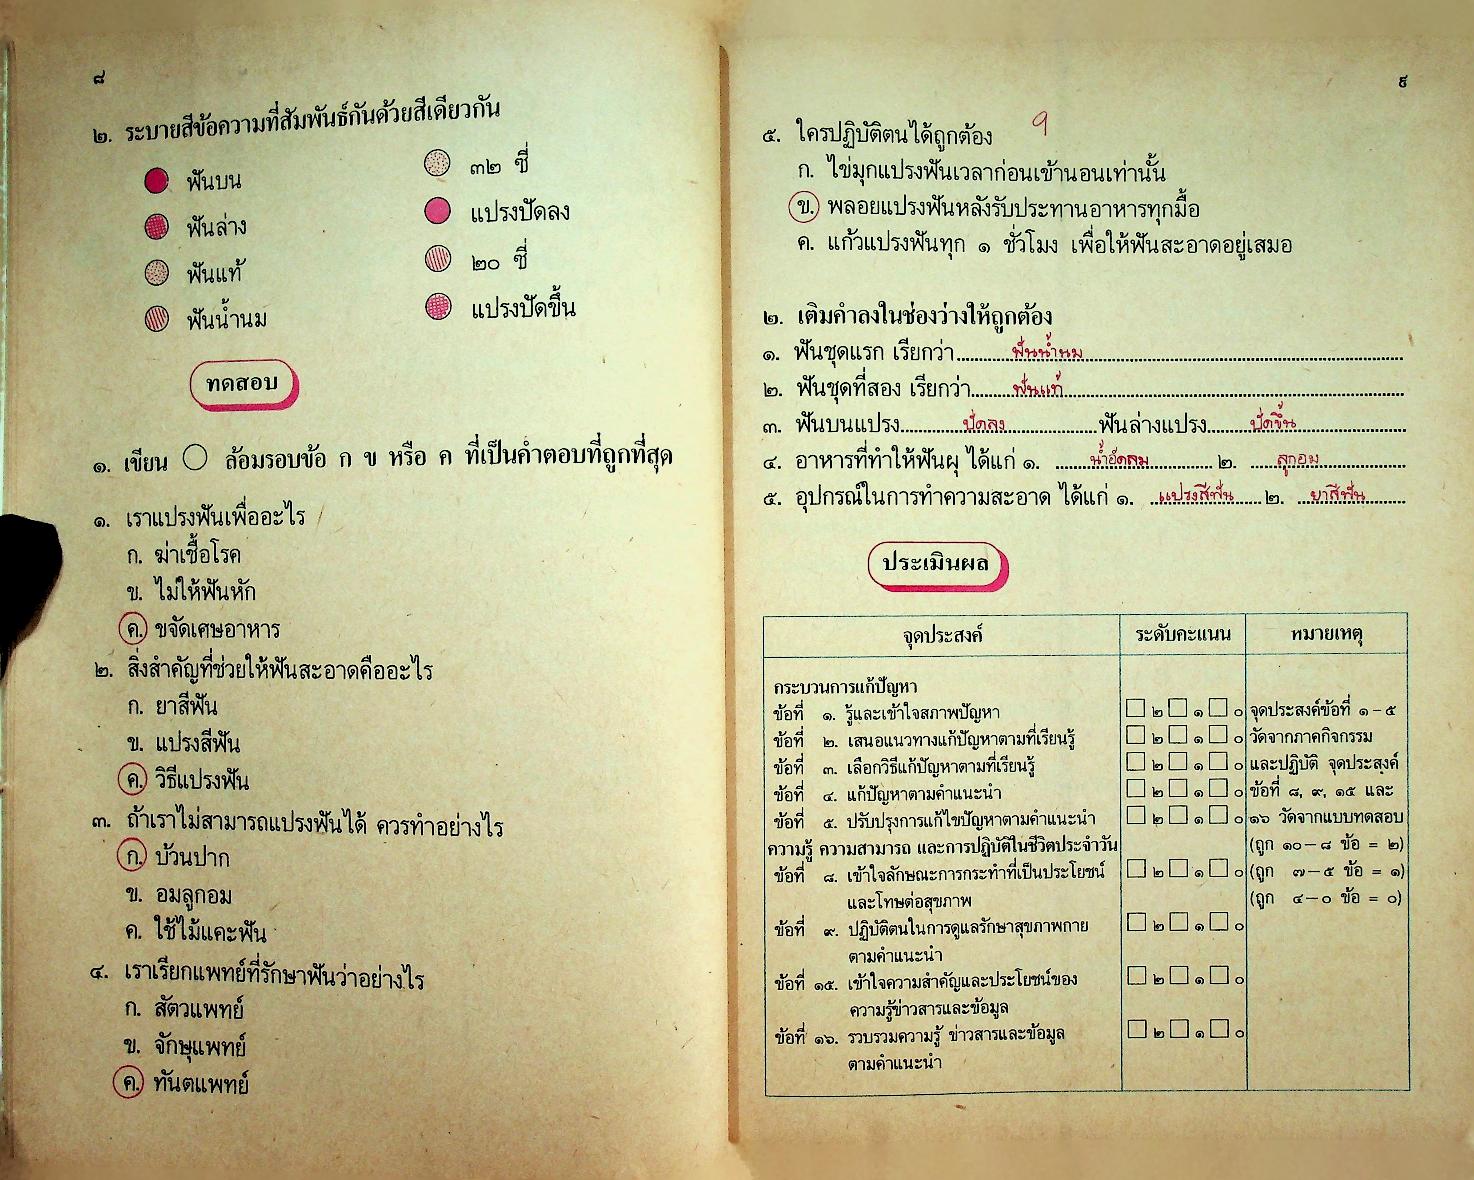 ๘
๒. ระบายสีข้อความที่สัมพันธ์กันด้วยสีเดียวกัน
ฟันบน ๓๒ ซี่
ฟันล่าง แปรงปัดลง
ฟันแท้ ๒๐ ซี่
ฟันน้ำนม แปรงปัดขึ้น
ทดสอบ
๑. เขียน ◯ ล้อมรอบข้อ ก ข หรือ ค ที่เป็นคำตอบที่ถูกที่สุด
๑. เราแปรงฟันเพื่ออะไร
ก. ฆ่าเชื้อโรค
ข. ไม่ให้ฟันหัก
ค. ขจัดเศษอาหาร
๒. สิ่งสำคัญที่ช่วยให้ฟันสะอาดคืออะไร
ก. ยาสีฟัน
ข. แปรงสีฟัน
ค. วิธีแปรงฟัน
๓. ถ้าเราไม่สามารถแปรงฟันได้ ควรทำอย่างไร
ก. บ้วนปาก
ข. อมลูกอม
ค. ใช้ไม้แคะฟัน
๔. เราเรียกแพทย์ที่รักษาฟันว่าอย่างไร
ก. สัตวแพทย์
ข. จักษุแพทย์
ค. ทันตแพทย์
๙
๕. ใครปฏิบัติตนได้ถูกต้อง
ก. ไข่มุกแปรงฟันเวลาก่อนเข้านอนเท่านั้น
ข. พลอยแปรงฟันหลังรับประทานอาหารทุกมื้อ
ค. แก้วแปรงฟันทุก ๑ ชั่วโมง เพื่อให้ฟันสะอาดอยู่เสมอ
๒. เติมคำลงในช่องว่างให้ถูกต้อง
๑. ฟันชุดแรก เรียกว่า ฟันน้ำนม
๒. ฟันชุดที่สอง เรียกว่า ฟันแท้
๓. ฟันบนแปรง ปัดลง ฟันล่างแปรง ปัดขึ้น
๔. อาหารที่ทำให้ฟันผุ ได้แก่ ๑. น้ำอัดลม ๒. ลูกอม
๕. อุปกรณ์ในการทำความสะอาด ได้แก่ ๑. แปรงสีฟัน ๒. ยาสีฟัน
ประเมินผล
จุดประสงค์ ระดับคะแนน หมายเหตุ
กระบวนการแก้ปัญหา
ข้อที่ ๑. รู้และเข้าใจสภาพปัญหา ☐ ๒ ☐ ๑ ☐ ๐ จุดประสงค์ข้อที่ ๑-๕
ข้อที่ ๒. เสนอแนวทางแก้ปัญหาตามที่เรียนรู้ ☐ ๒ ☐ ๑ ☐ ๐ วัดจากภาคกิจกรรม
ข้อที่ ๓. เลือกวิธีแก้ปัญหาตามที่เรียนรู้ ☐ ๒ ☐ ๑ ☐ ๐ และปฏิบัติ จุดประสงค์
ข้อที่ ๔. แก้ปัญหาตามคำแนะนำ ☐ ๒ ☐ ๑ ☐ ๐ ข้อที่ ๘, ๙, ๑๕ และ
ข้อที่ ๕. ปรับปรุงการแก้ไขปัญหาตามคำแนะนำ ☐ ๒ ☐ ๑ ☐ ๐ ๑๖ วัดจากแบบทดสอบ
ความรู้ ความสามารถ และการปฏิบัติในชีวิตประจำวัน (ถูก ๑๐-๘ ข้อ = ๒)
ข้อที่ ๘. เข้าใจลักษณะการกระทำที่เป็นประโยชน์ ☐ ๒ ☐ ๑ ☐ ๐ (ถูก ๗-๕ ข้อ = ๑)
และโทษต่อสุขภาพ (ถูก ๔-๐ ข้อ = ๐)
ข้อที่ ๙. ปฏิบัติตนในการดูแลรักษาสุขภาพกาย ☐ ๒ ☐ ๑ ☐ ๐
ตามคำแนะนำ
ข้อที่ ๑๕. เข้าใจความสำคัญและประโยชน์ของ ☐ ๒ ☐ ๑ ☐ ๐
ความรู้ข่าวสารและข้อมูล
ข้อที่ ๑๖. รวบรวมความรู้ ข่าวสารและข้อมูล ☐ ๒ ☐ ๑ ☐ ๐
ตามคำแนะนำ